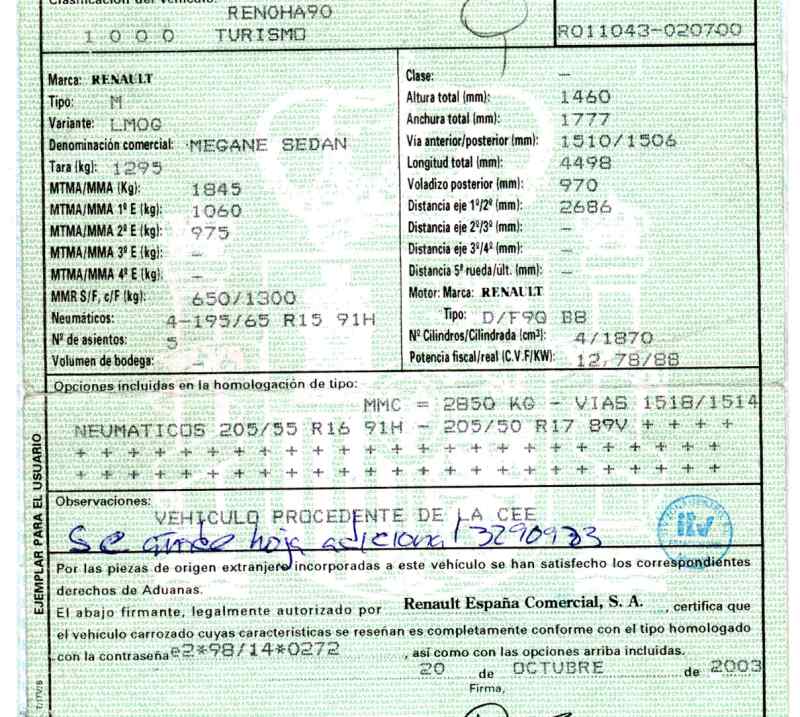 Clasificación del vehículo:
RENOHA90
1 0 0 0 TURISMO
R011043-020700
Marca: RENAULT
Tipo: M
Variante: LM0G
Denominación comercial: MEGANE SEDAN
Tara (kg): 1295
MTMA/MMA (Kg): 1845
MTMA/MMA 1º E (kg): 1060
MTMA/MMA 2º E (kg): 975
MTMA/MMA 3º E (kg): —
MTMA/MMA 4º E (kg): —
MMR S/F, c/F (kg): 650/1300
Neumáticos: 4-195/65 R15 91H
Nº de asientos: 5
Volumen de bodega: —
Clase: —
Altura total (mm): 1460
Anchura total (mm): 1777
Vía anterior/posterior (mm): 1510/1506
Longitud total (mm): 4498
Voladizo posterior (mm): 970
Distancia eje 1º/2º (mm): 2686
Distancia eje 2º/3º (mm): —
Distancia eje 3º/4º (mm): —
Distancia 5ª rueda/últ. (mm): —
Motor: Marca: RENAULT
Tipo: D/F9Q B8
Nº Cilindros/Cilindrada (cm³): 4/1870
Potencia fiscal/real (C.V.F/KW): 12,78/88
Opciones incluidas en la homologación de tipo:
MMC = 2850 KG - VIAS 1518/1514
NEUMATICOS 205/55 R16 91H - 205/50 R17 89V + + + +
+ + + + + + + + + + + + + + + + + + + + + + + +
+ + + + + + + + + + + + + + + + + + + + + + + +
Observaciones:
VEHICULO PROCEDENTE DE LA CEE
Se añade hoja adicional 3290923
itv
Por las piezas de origen extranjero incorporadas a este vehículo se han satisfecho los correspondientes
derechos de Aduanas.
El abajo firmante, legalmente autorizado por Renault España Comercial, S. A. , certifica que
el vehículo carrozado cuyas características se reseñan es completamente conforme con el tipo homologado
con la contraseña e2*98/14*0272 , así como con las opciones arriba incluidas.
20 de OCTUBRE de 2003
Firma,
EJEMPLAR PARA EL USUARIO